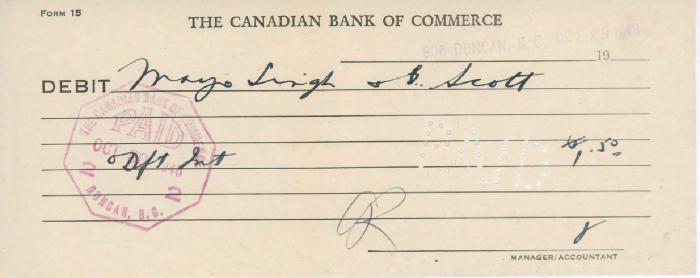 FORM 15
THE CANADIAN BANK OF COMMERCE
906 DUNCAN, B. C. OCT 29 1948
19
DEBIT Mayo Singh & G. Scott
THE CANADIAN BANK OF COMMERCE
PAID
OCT
2 2
DUNCAN, B.C.
O Dft Int
PAID
.50
MANAGER/ACCOUNTANT